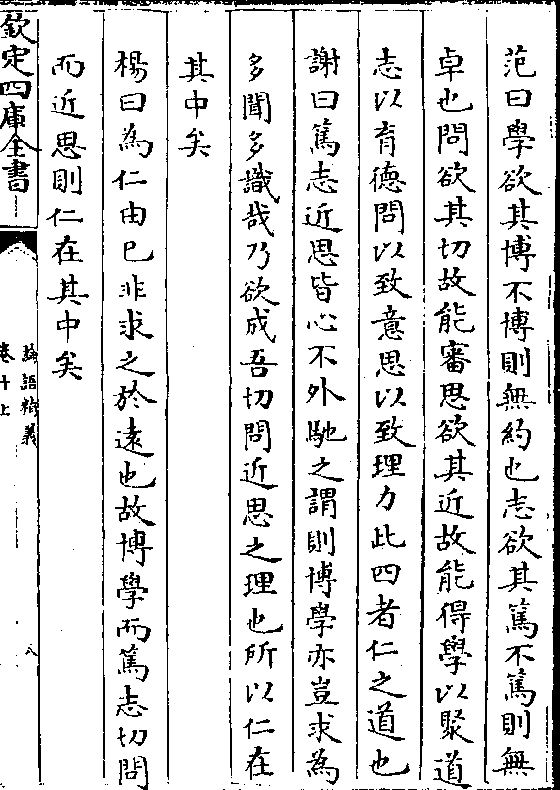 范曰學欲其博不博則無約也志欲其篤不篤則無
卓也問欲其切故能審思欲其近故能得學以聚道
志以育德問以致意思以致理力此四者仁之道也
謝曰篤志近思皆心不外馳之謂則博學亦豈求為
多聞多識哉乃欲成吾切問近思之理也所以仁在
其中矣
楊曰為仁由已非求之於遠也故博學而篤志切問
而近思則仁在其中矣
欽定四庫全書
論語精義
卷十上
八